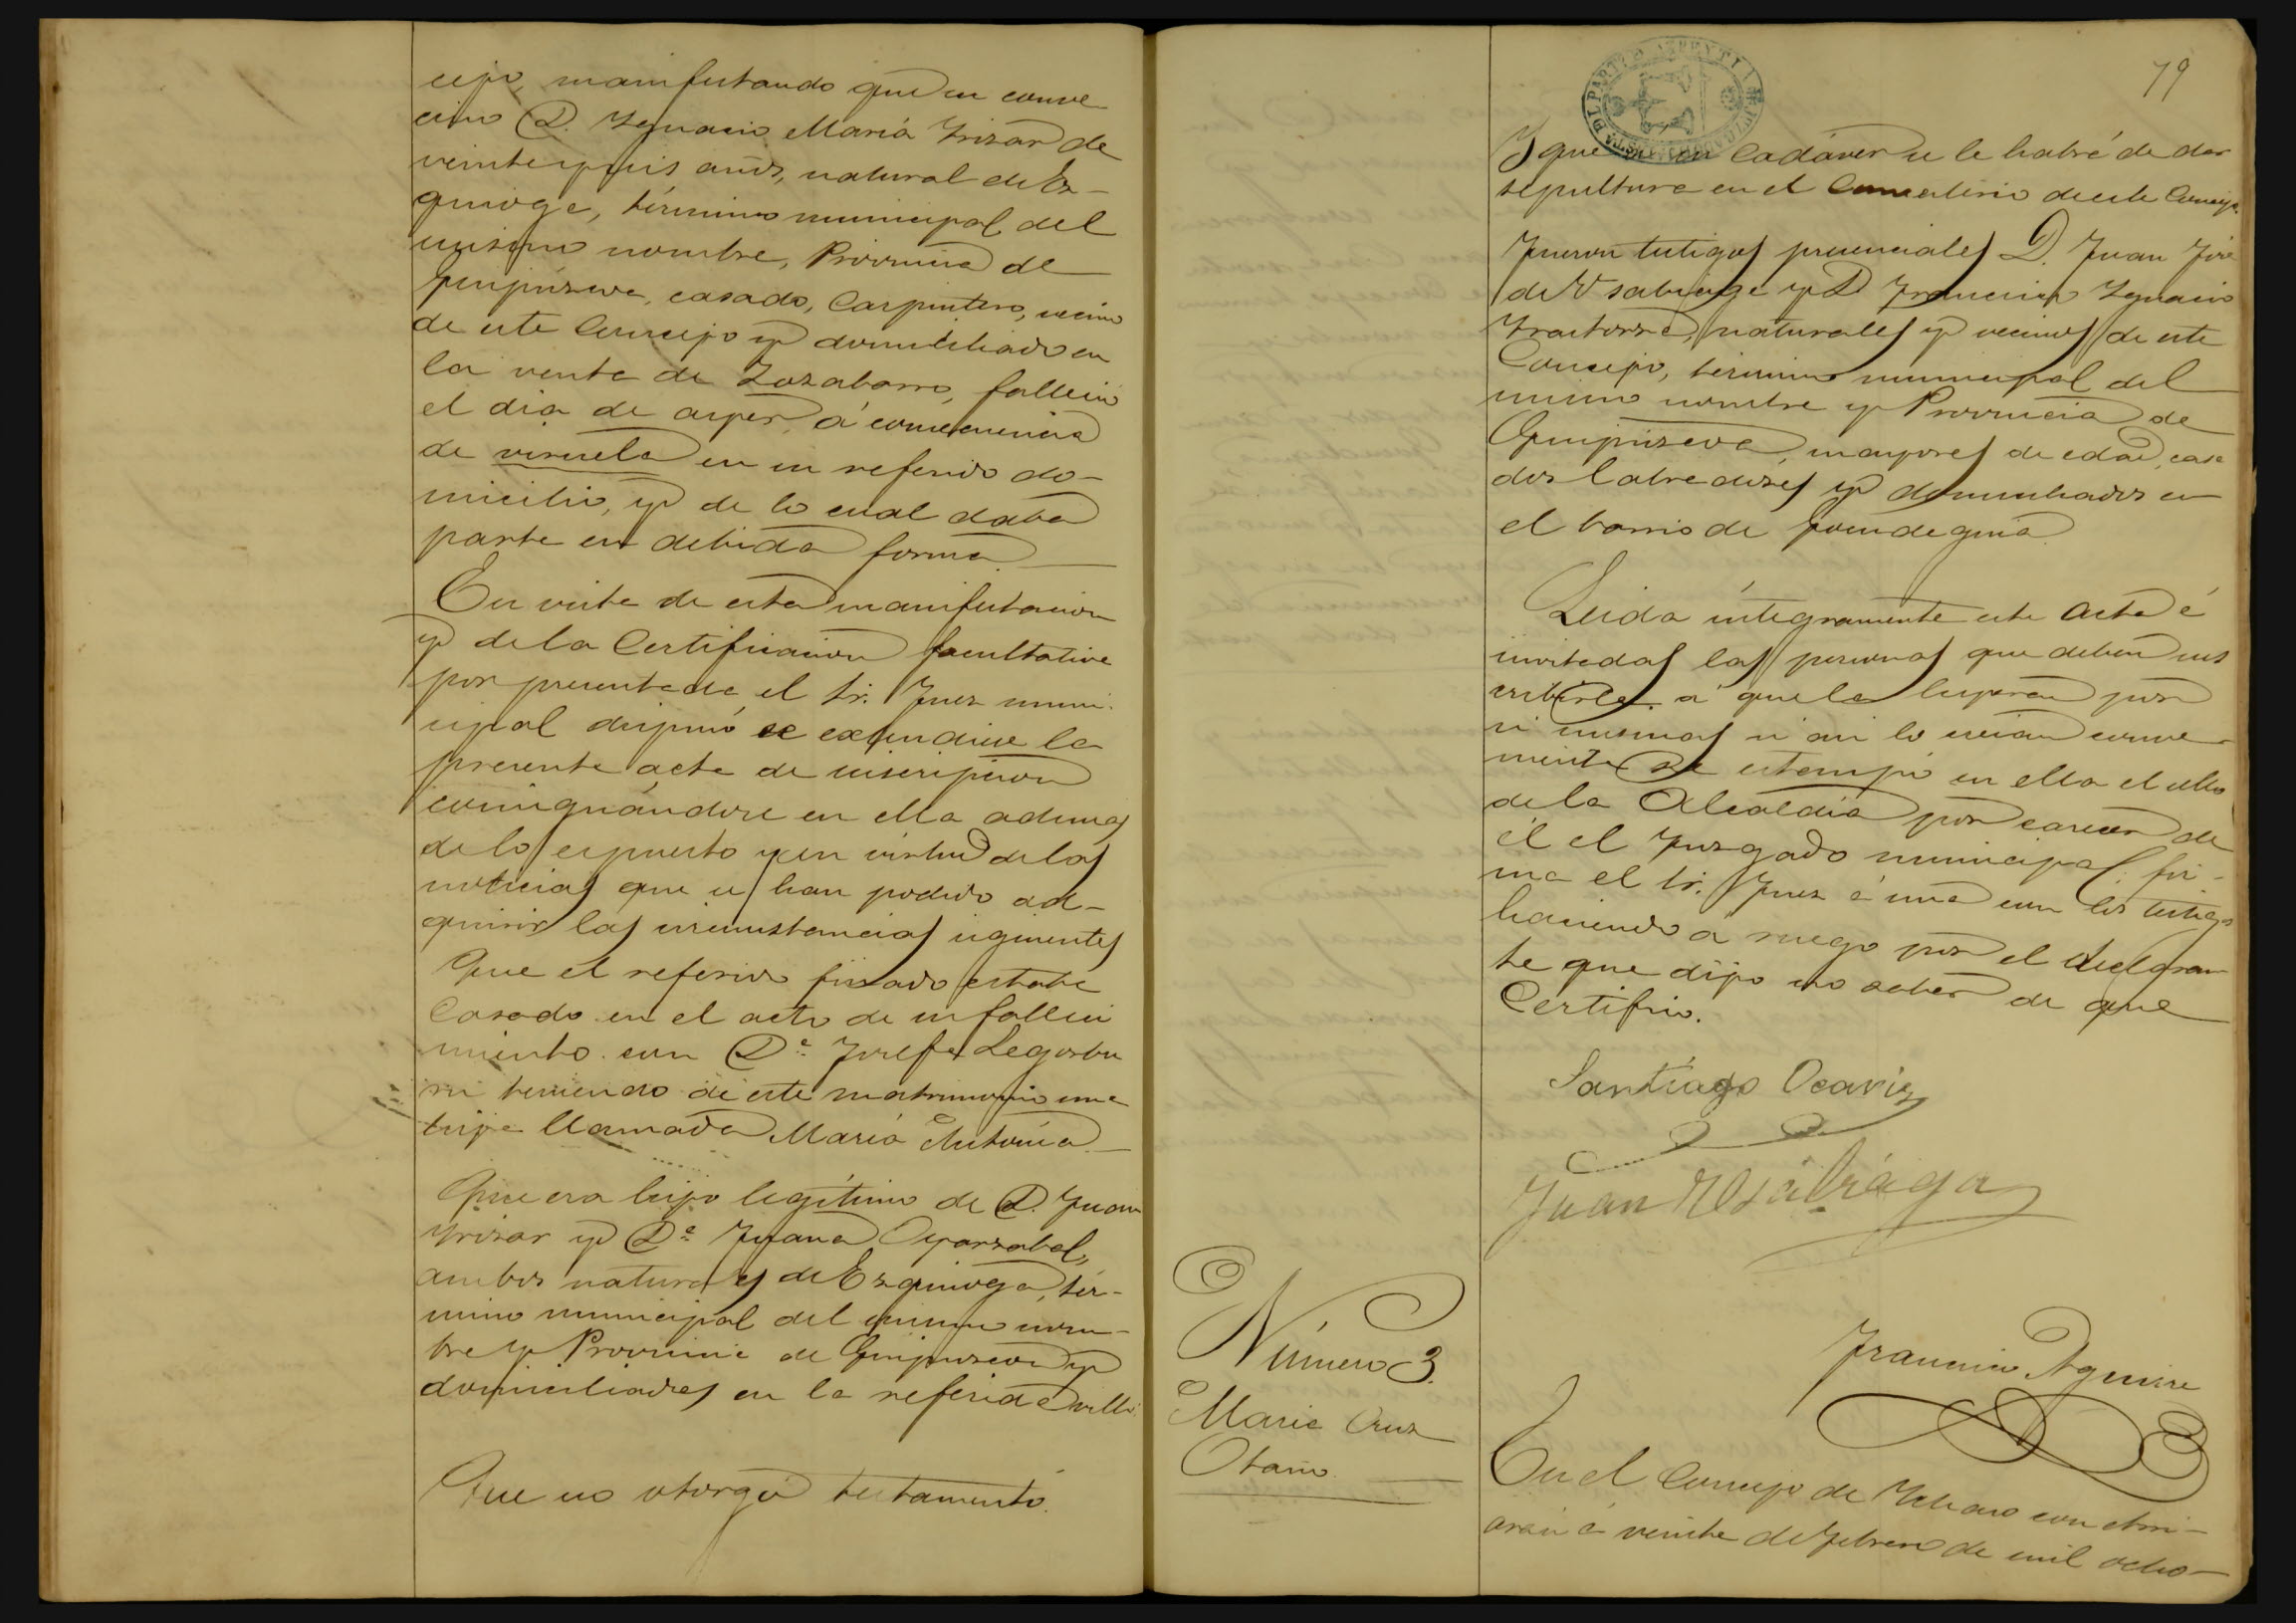 cejo, manifestando que su conve-
cino D. Ignacio María Irizar de
veinte y seis años, natural de Ez-
quioga, término municipal del
mismo nombre, Provincia de
Guipúzcoa, casado, Carpintero, vecino
de este Concejo y domiciliado en
la venta de Zozabarro, falleció
el dia de ayer á consecuencia
de viruela en su referido do-
micilio, y de lo cual daba
parte en debida forma.
En vista de esta manifestacion
y de la Certificacion facultativa
por presentada, el Sr. Juez muni-
cipal dispuso se extendiese la
presente acta de inscripcion
consignándose en ella ademas
de lo expuesto y en virtud de las
noticias que se han podido ad-
quirir las circunstancias siguientes
Que el referido finado estaba
Casado en el acto de su falleci
miento con D.ª Josefa Legorbu
ru teniendo de este matrimonio una
hija llamada María Antonia.
Que era hijo legítimo de D. Juan
Yrizar y D.ª Juana Oyarzabal,
ambos naturales de Ezquioga, tér-
mino municipal del mismo nom-
bre y Provincia de Guipuzcoa y
domiciliados en la referida villa.
Que no otorgó testamento.
79
Y que su Cadáver se le habrá de dar
sepultura en el Cementerio de este Concejo.
Fueron testigos presenciales D. Juan José
de Usabiaga y D Francisco Ignacio
naturales y vecinos de este
Concejo, término municipal del
mismo nombre y Provincia de
Guipúzcoa, mayores de edad, casa
dos labradores y domiciliados en
el barrio de
Leida íntegramente este Acta é
invitadas las personas que deben sus
cribirla á que la leyeran por
si mismas si asi lo creian conve-
niente Se estampó en ella el sello
de la Alcaldia por carecer de
él el Juzgado municipal, fir-
ma el Sr. Juez é una con los testigos
haciendo á ruego por el declaran
te que dijo no saber de que
Certifico.
Santiago
Juan Usabiaga
Francisco Aguirre
Número 3.
Maria Cruz
Otaño
En el Concejo de Ichaso con
á veinte de Febrero de mil ocho-